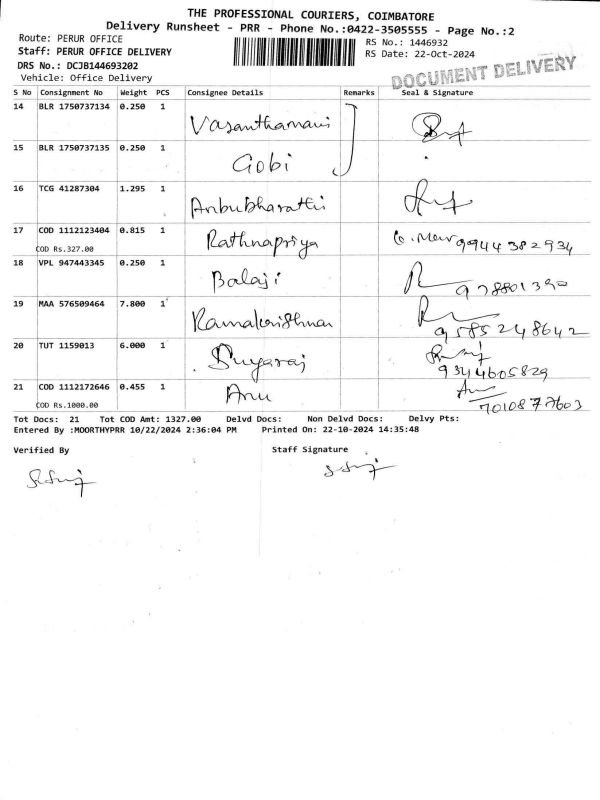 THE PROFESSIONAL COURIERS, COIMBATORE
Delivery Runsheet - PRR - Phone No.:0422-3505555 - Page No.:2
Route: PERUR OFFICE
RS No.: 1446932
Staff: PERUR OFFICE DELIVERY
RS Date: 22-Oct-2024
DRS No.: DCJB144693202
DOCUMENT DELIVERY
Vehicle: Office Delivery
S No Consignment No Weight PCS Consignee Details Remarks Seal & Signature
14 BLR 1750737134 0.250 1 Vasanthamani
15 BLR 1750737135 0.250 1 Gobi
16 TCG 41287304 1.295 1 Anbubharathi
17 COD 1112123404 0.815 1 Rathnapriya 9944382934
COD Rs.327.00
18 VPL 947443345 0.250 1 Balaji
19 MAA 576509464 7.800 1 Ramakrishnan 9585248642
20 TUT 1159013 6.000 1 9344605829
21 COD 1112172646 0.455 1 Anu 7010877603
COD Rs.1000.00
Tot Docs: 21 Tot COD Amt: 1327.00 Delvd Docs: Non Delvd Docs: Delvy Pts:
Entered By :MOORTHYPRR 10/22/2024 2:36:04 PM Printed On: 22-10-2024 14:35:48
Verified By Staff Signature